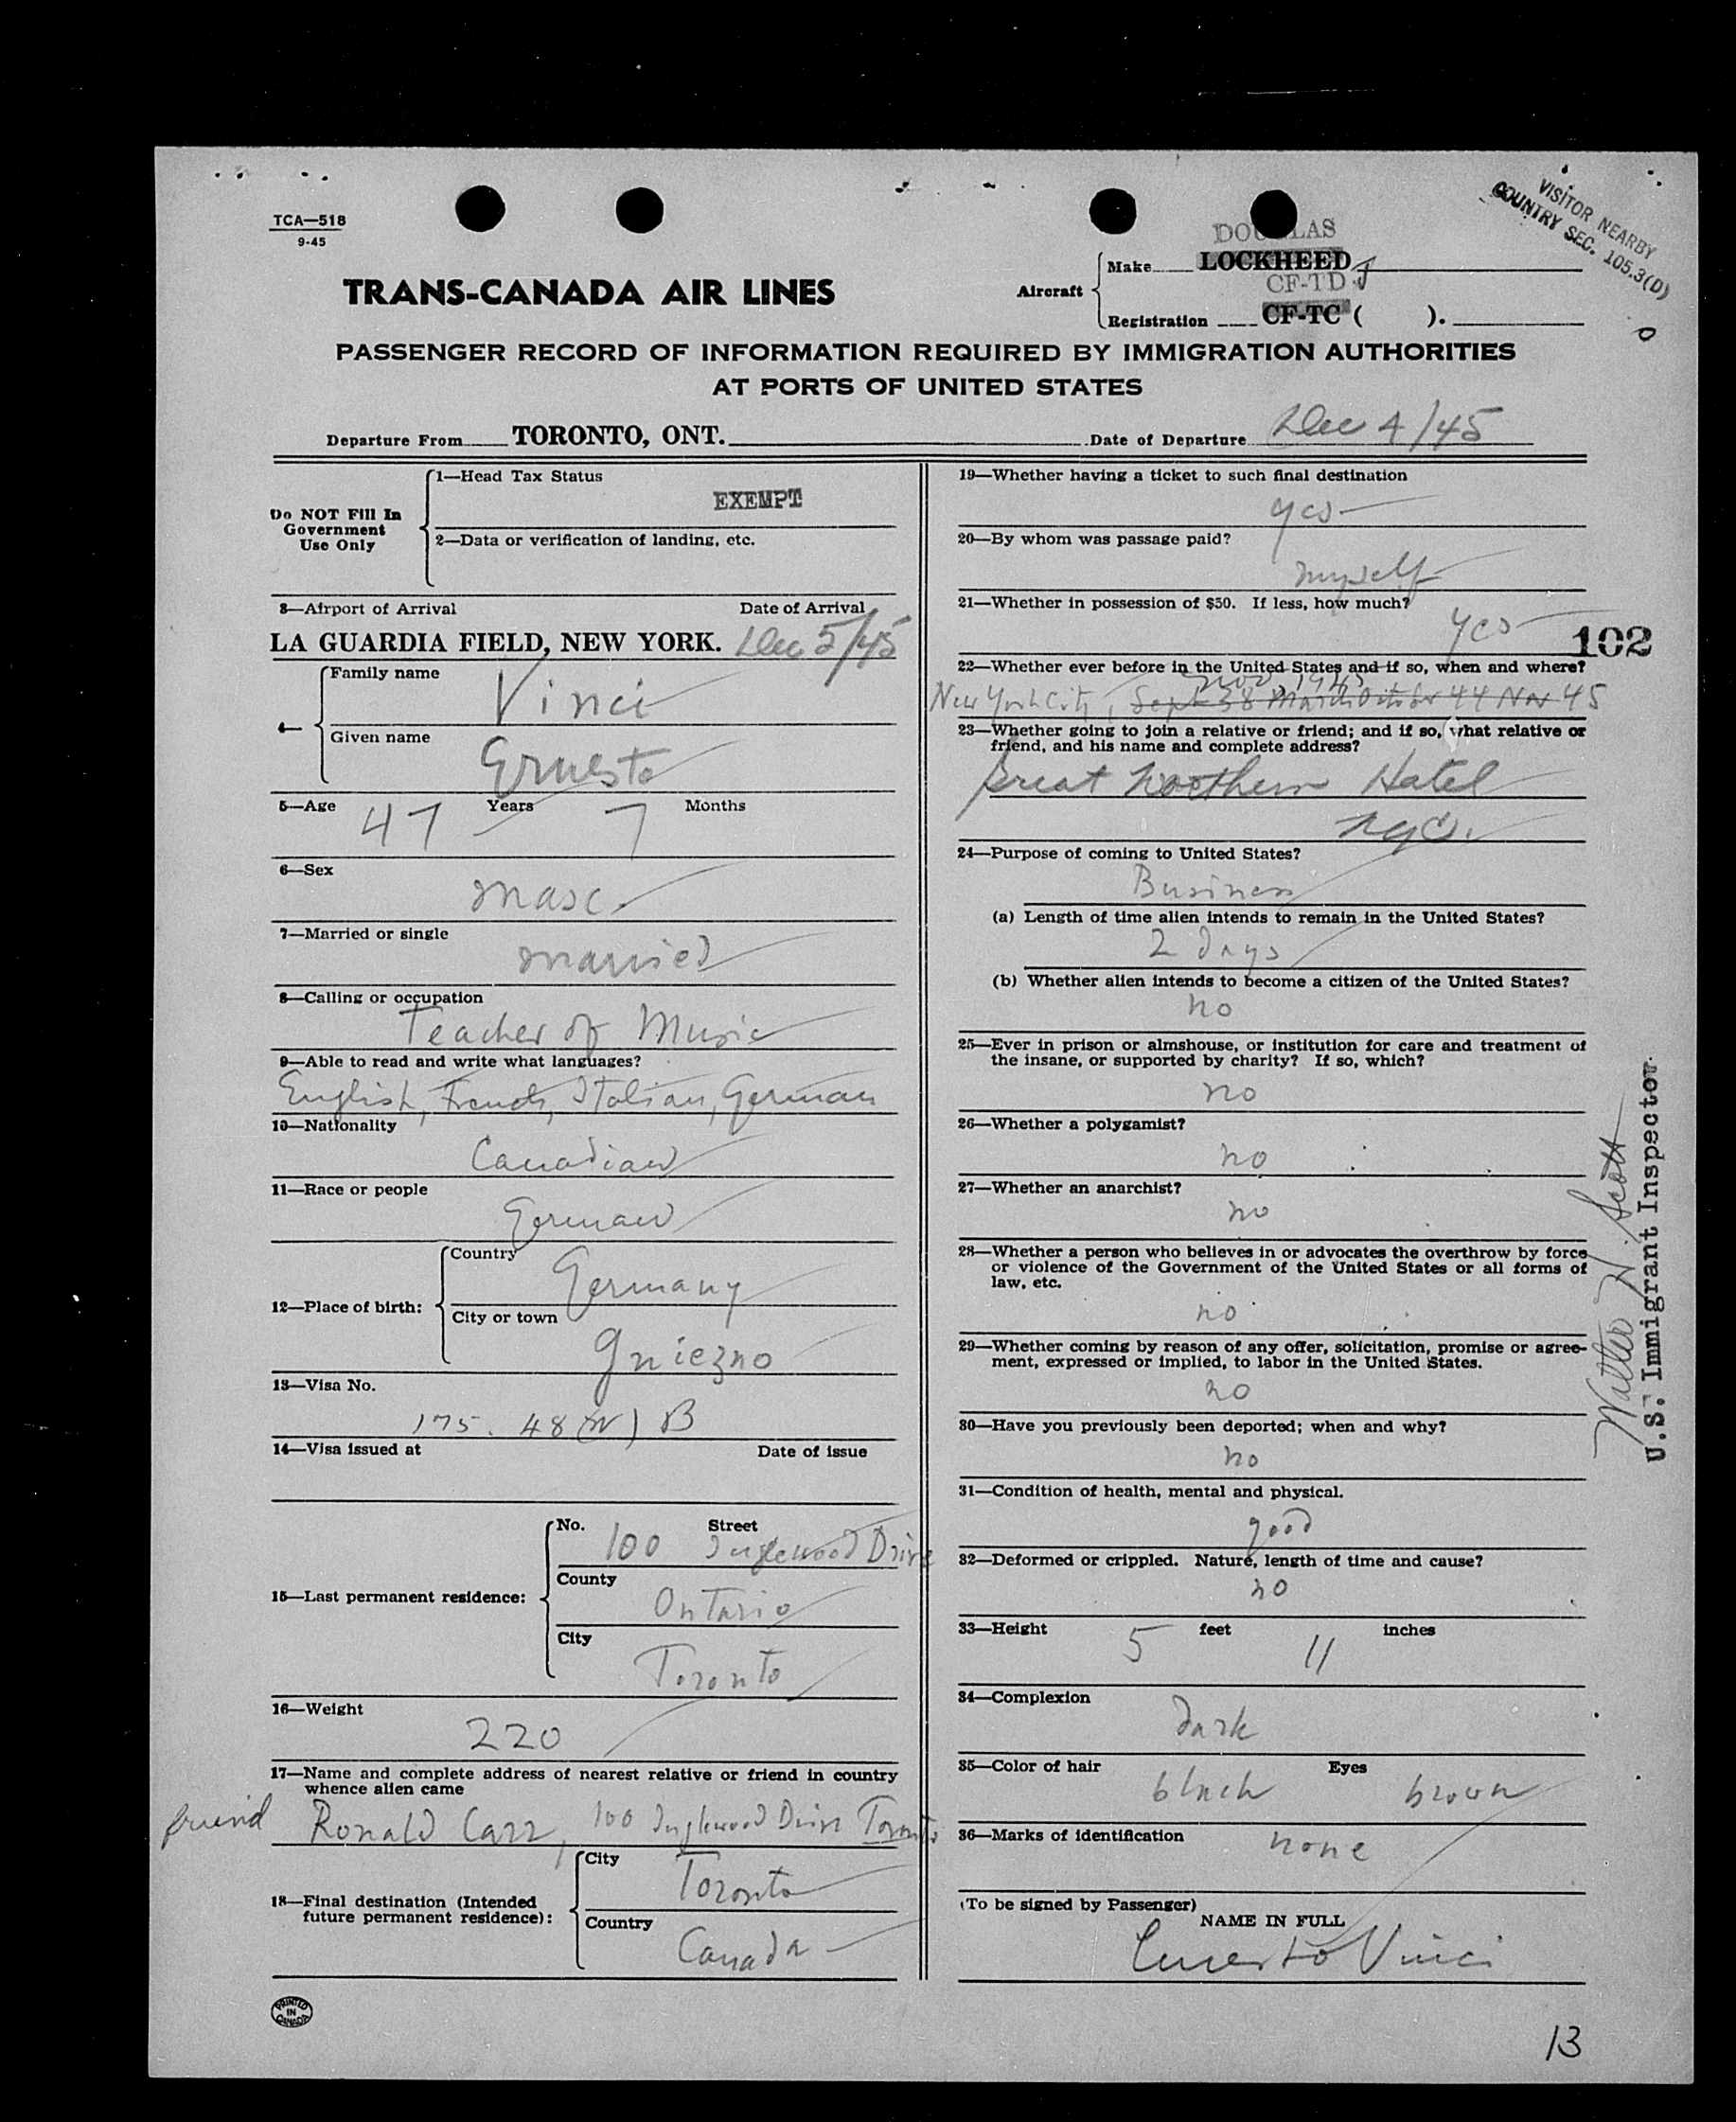 TCA—518
9-45
VISITOR NEARBY
COUNTRY SEC. 105.3(D)
TRANS-CANADA AIR LINES
Aircraft
DOUGLAS
Make LOCKHEED
CF-TD
Registration CF-TC ( ).
PASSENGER RECORD OF INFORMATION REQUIRED BY IMMIGRATION AUTHORITIES
AT PORTS OF UNITED STATES
Departure From TORONTO, ONT. Date of Departure Dec 4/45
Do NOT Fill In
Government
Use Only
1—Head Tax Status
EXEMPT
2—Data or verification of landing, etc.
3—Airport of Arrival Date of Arrival
LA GUARDIA FIELD, NEW YORK. Dec 5/45
4—
Family name
Vinci
Given name
Ernesto
5—Age 47 Years 7 Months
6—Sex
masc.
7—Married or single
married
8—Calling or occupation
Teacher of Music
9—Able to read and write what languages?
English, French, Italian, German
10—Nationality
Canadian
11—Race or people
German
12—Place of birth:
Country
Germany
City or town
Gniezno
13—Visa No.
175. 48 (W) B
14—Visa issued at Date of issue
15—Last permanent residence:
No. 100 Street Inglewood Drive
County
Ontario
City
Toronto
16—Weight
220
17—Name and complete address of nearest relative or friend in country
whence alien came
friend Ronald Carr, 100 Inglewood Drive Toronto
18—Final destination (Intended
future permanent residence):
City
Toronto
Country
Canada
PRINTED
IN
CANADA
19—Whether having a ticket to such final destination
yes
20—By whom was passage paid?
myself
21—Whether in possession of $50. If less, how much?
yes
102
22—Whether ever before in the United States and if so, when and where?
Nov 1945
New York City, Sept 38 March October 44 Nov 45
23—Whether going to join a relative or friend; and if so, what relative or
friend, and his name and complete address?
Great Northern Hotel
nyc.
24—Purpose of coming to United States?
Business
(a) Length of time alien intends to remain in the United States?
2 days
(b) Whether alien intends to become a citizen of the United States?
no
25—Ever in prison or almshouse, or institution for care and treatment of
the insane, or supported by charity? If so, which?
no
26—Whether a polygamist?
no
27—Whether an anarchist?
no
28—Whether a person who believes in or advocates the overthrow by force
or violence of the Government of the United States or all forms of
law, etc.
no
29—Whether coming by reason of any offer, solicitation, promise or agree-
ment, expressed or implied, to labor in the United States.
no
30—Have you previously been deported; when and why?
no
31—Condition of health, mental and physical.
good
32—Deformed or crippled. Nature, length of time and cause?
no
33—Height 5 feet 11 inches
34—Complexion
dark
35—Color of hair Eyes
black brown
36—Marks of identification
none
(To be signed by Passenger)
NAME IN FULL
Ernesto Vinci
Walter H. Scott
U.S. Immigrant Inspector
13